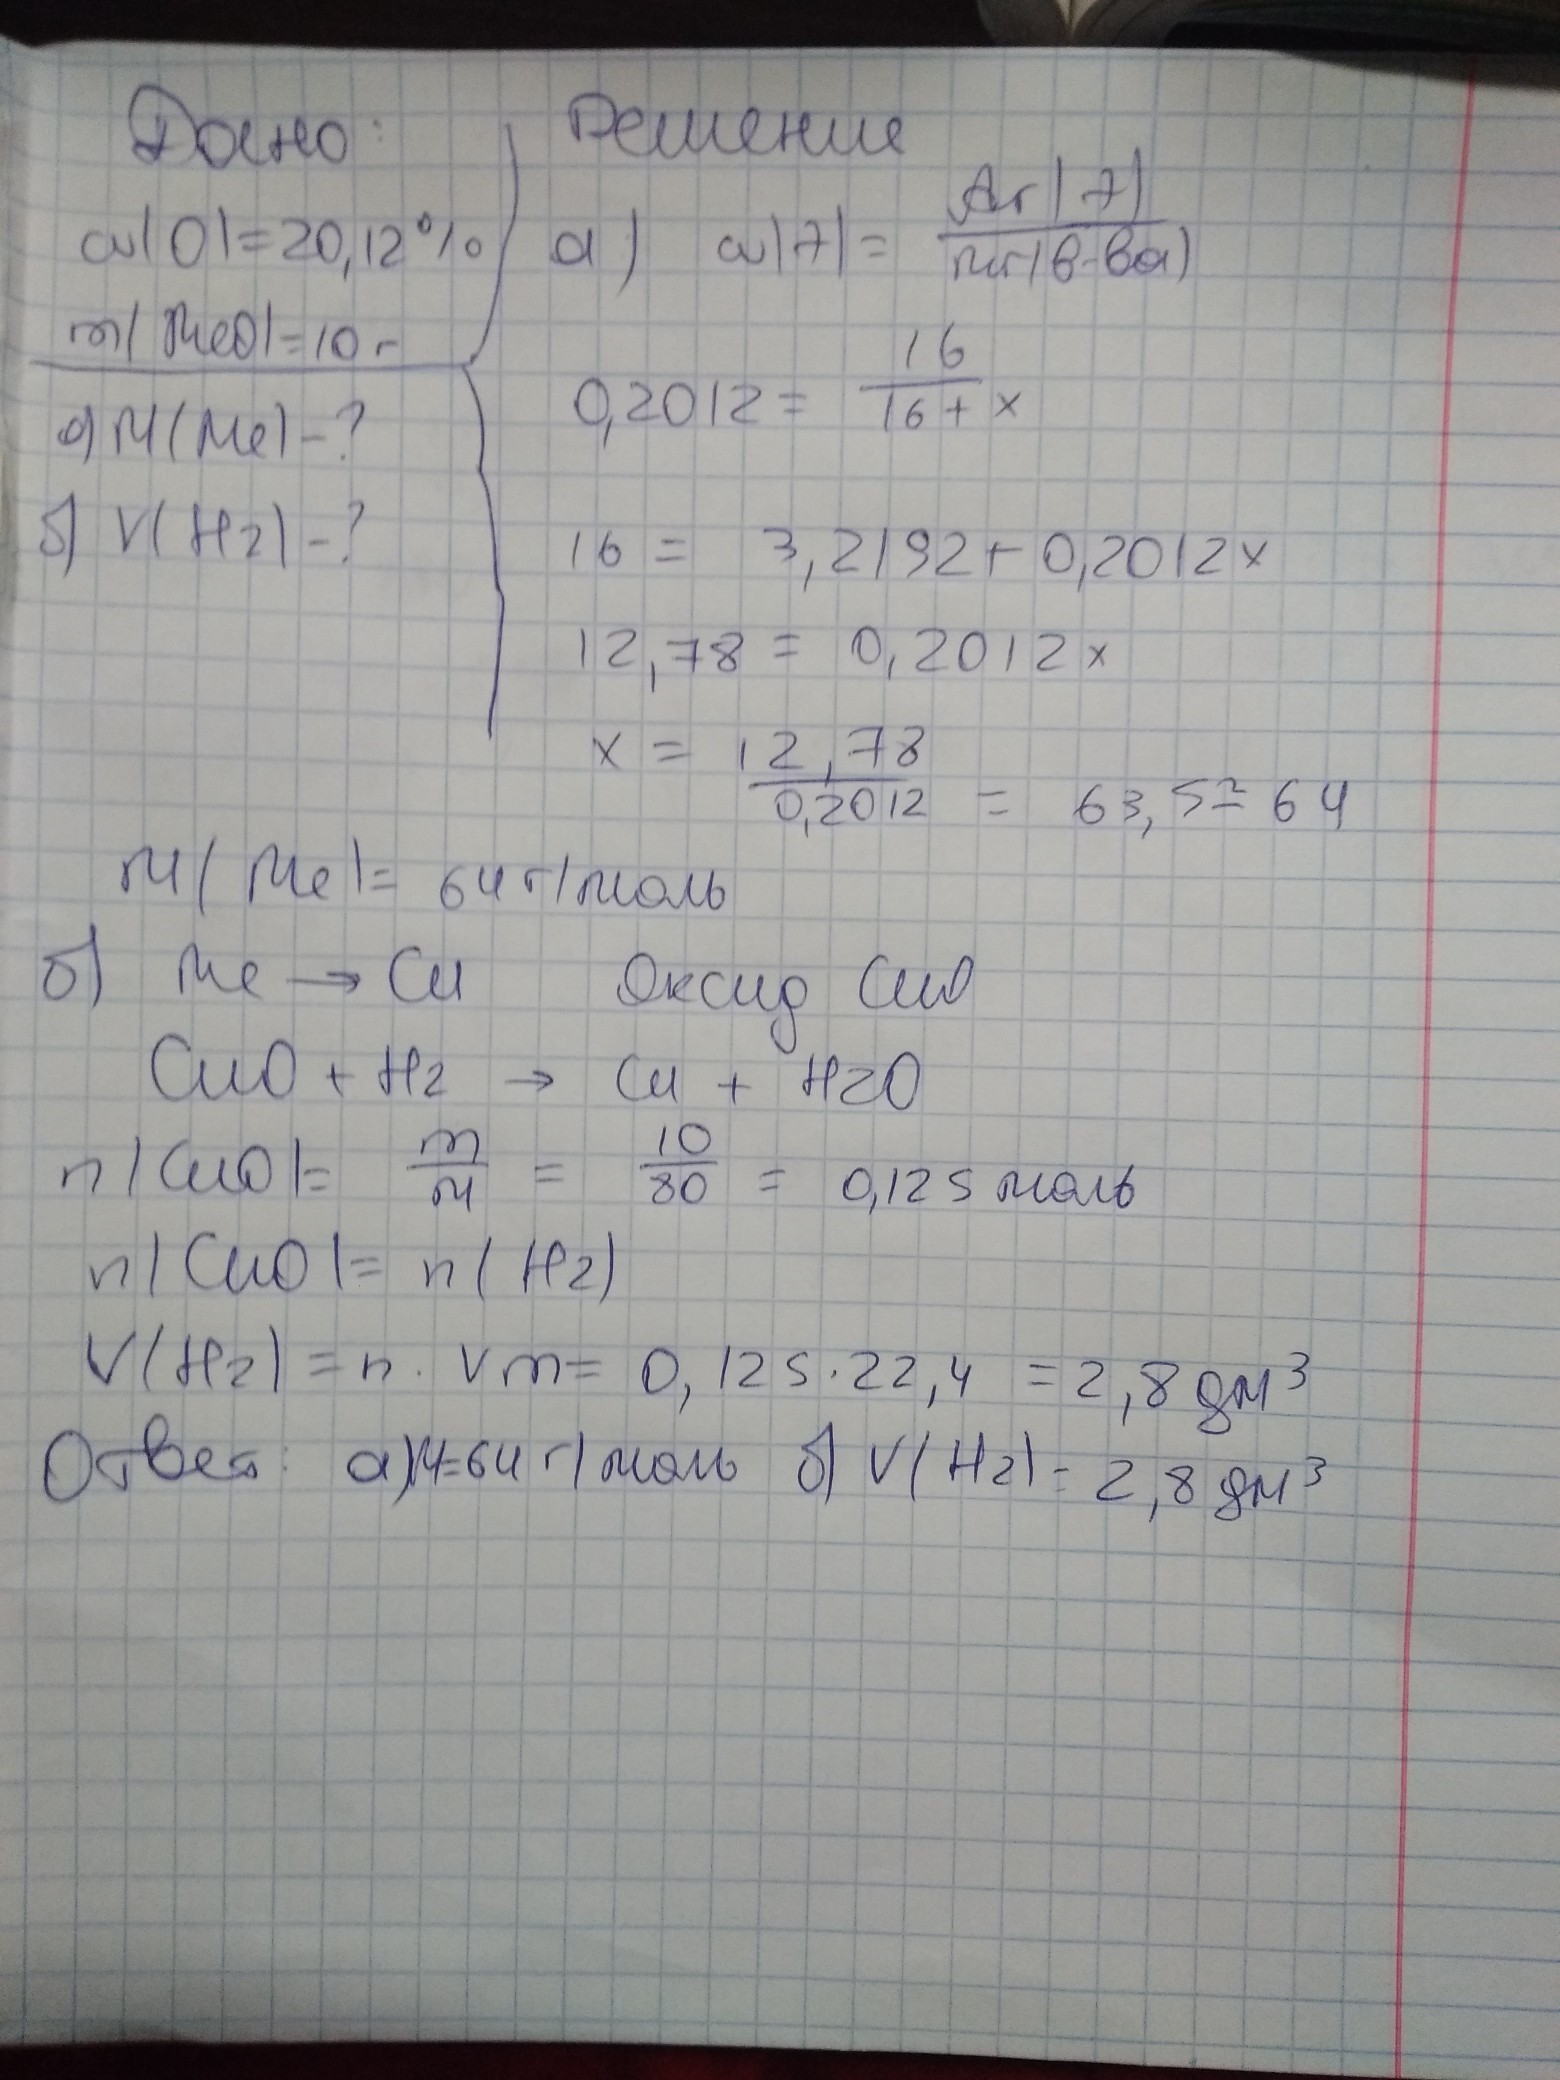 Дано:
Решение
w(O)=20,12%
m(MeO)=10 г
а) M(Me)-?
б) V(H2)-?
а) w(Э)= Ar(Э) / Mr(в-ва)
0,2012 = 16 / 16 + x
16 = 3,2192 + 0,2012x
12,78 = 0,2012x
x = 12,78 / 0,2012 = 63,5 ≈ 64
M(Me)= 64 г/моль
б) Me → Cu Оксид CuO
CuO + H2 → Cu + H2O
n(CuO)= m / M = 10 / 80 = 0,125 моль
n(CuO)= n(H2)
V(H2) = n · Vm = 0,125 · 22,4 = 2,8 дм³
Ответ: а) M=64 г/моль б) V(H2)= 2,8 дм³